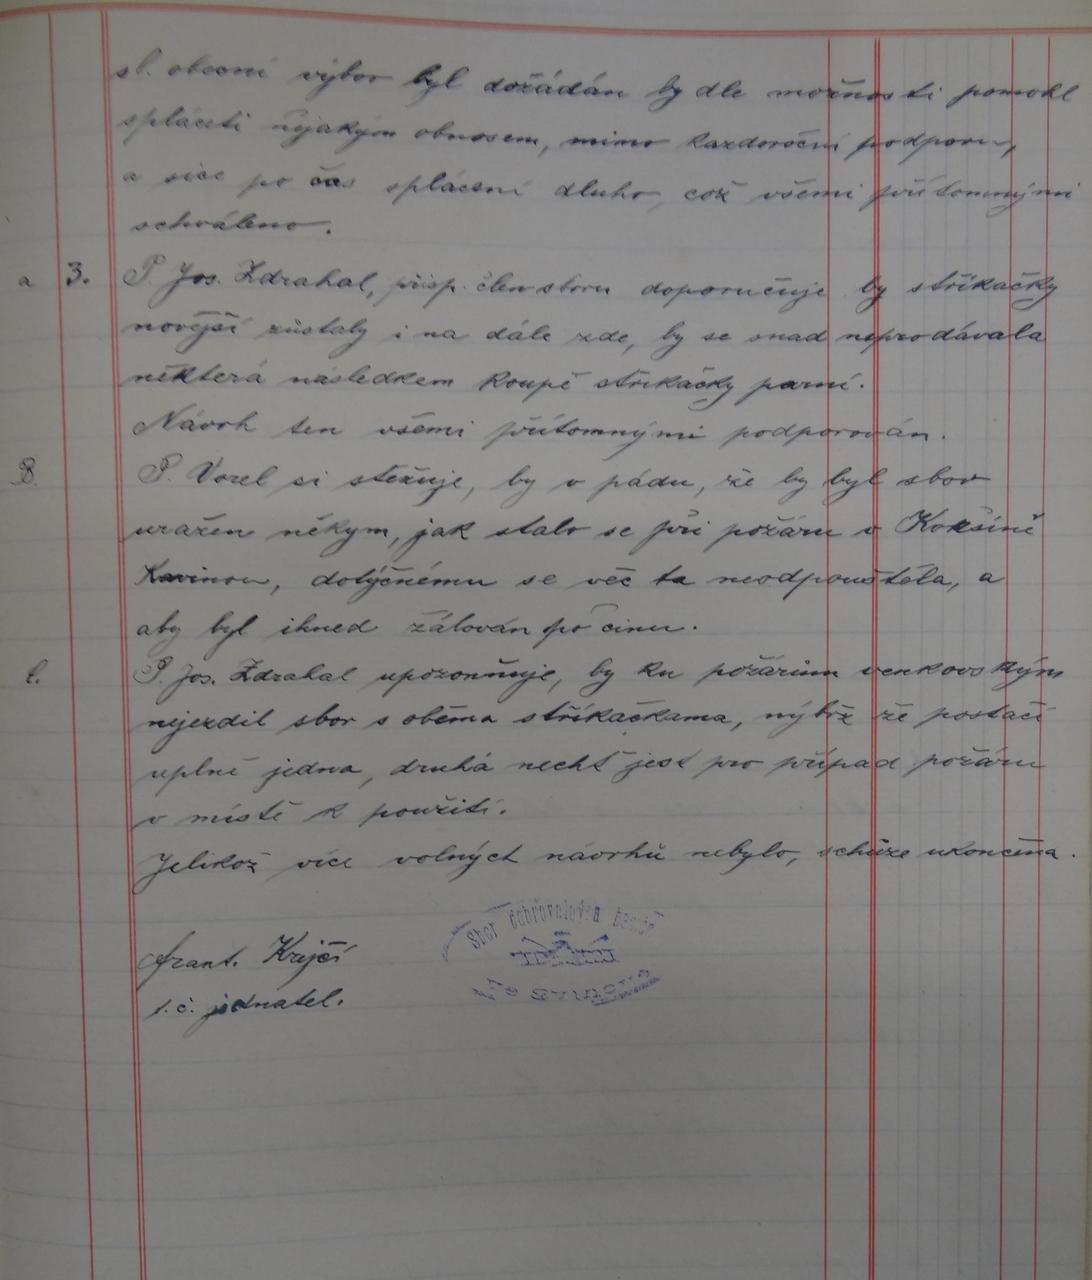 sl. obecní výbor byl dožádán by dle možnosti pomohl
spláceti nějakým obnosem, mimo každoroční podporu,
a sice po čas splácení dluho, což všemi přítomnými
schváleno.
a 3. P. Jos. Zdrahal, přisp. člen sboru doporučuje by stříkačky
novější zůstaly i na dále zde, by se snad neprodávala
některá následkem koupě stříkačky parní.
Návrh ten všemi přítomnými podporován.
B. P. Vorel si stěžuje, by v pádu, že by byl sbor
uražen někym, jak stalo se při požáru v Kokšíně
dotýčnému se věc ta neodpouštěla, a
aby byl ihned žálován po činu.
C. P. Jos. Zdrahal upozorňuje, by ku požárům venkovským
nejezdil sbor s oběma stříkačkama, nýbrž že postačí
uplně jedna, druhá nechť jest pro případ požáru
v místě k použití.
Jelikož více volných návrhů nebylo, schůze ukončena.
Sbor dobrovolných hasičů
Frant. Krejčí
t. č. jednatel.